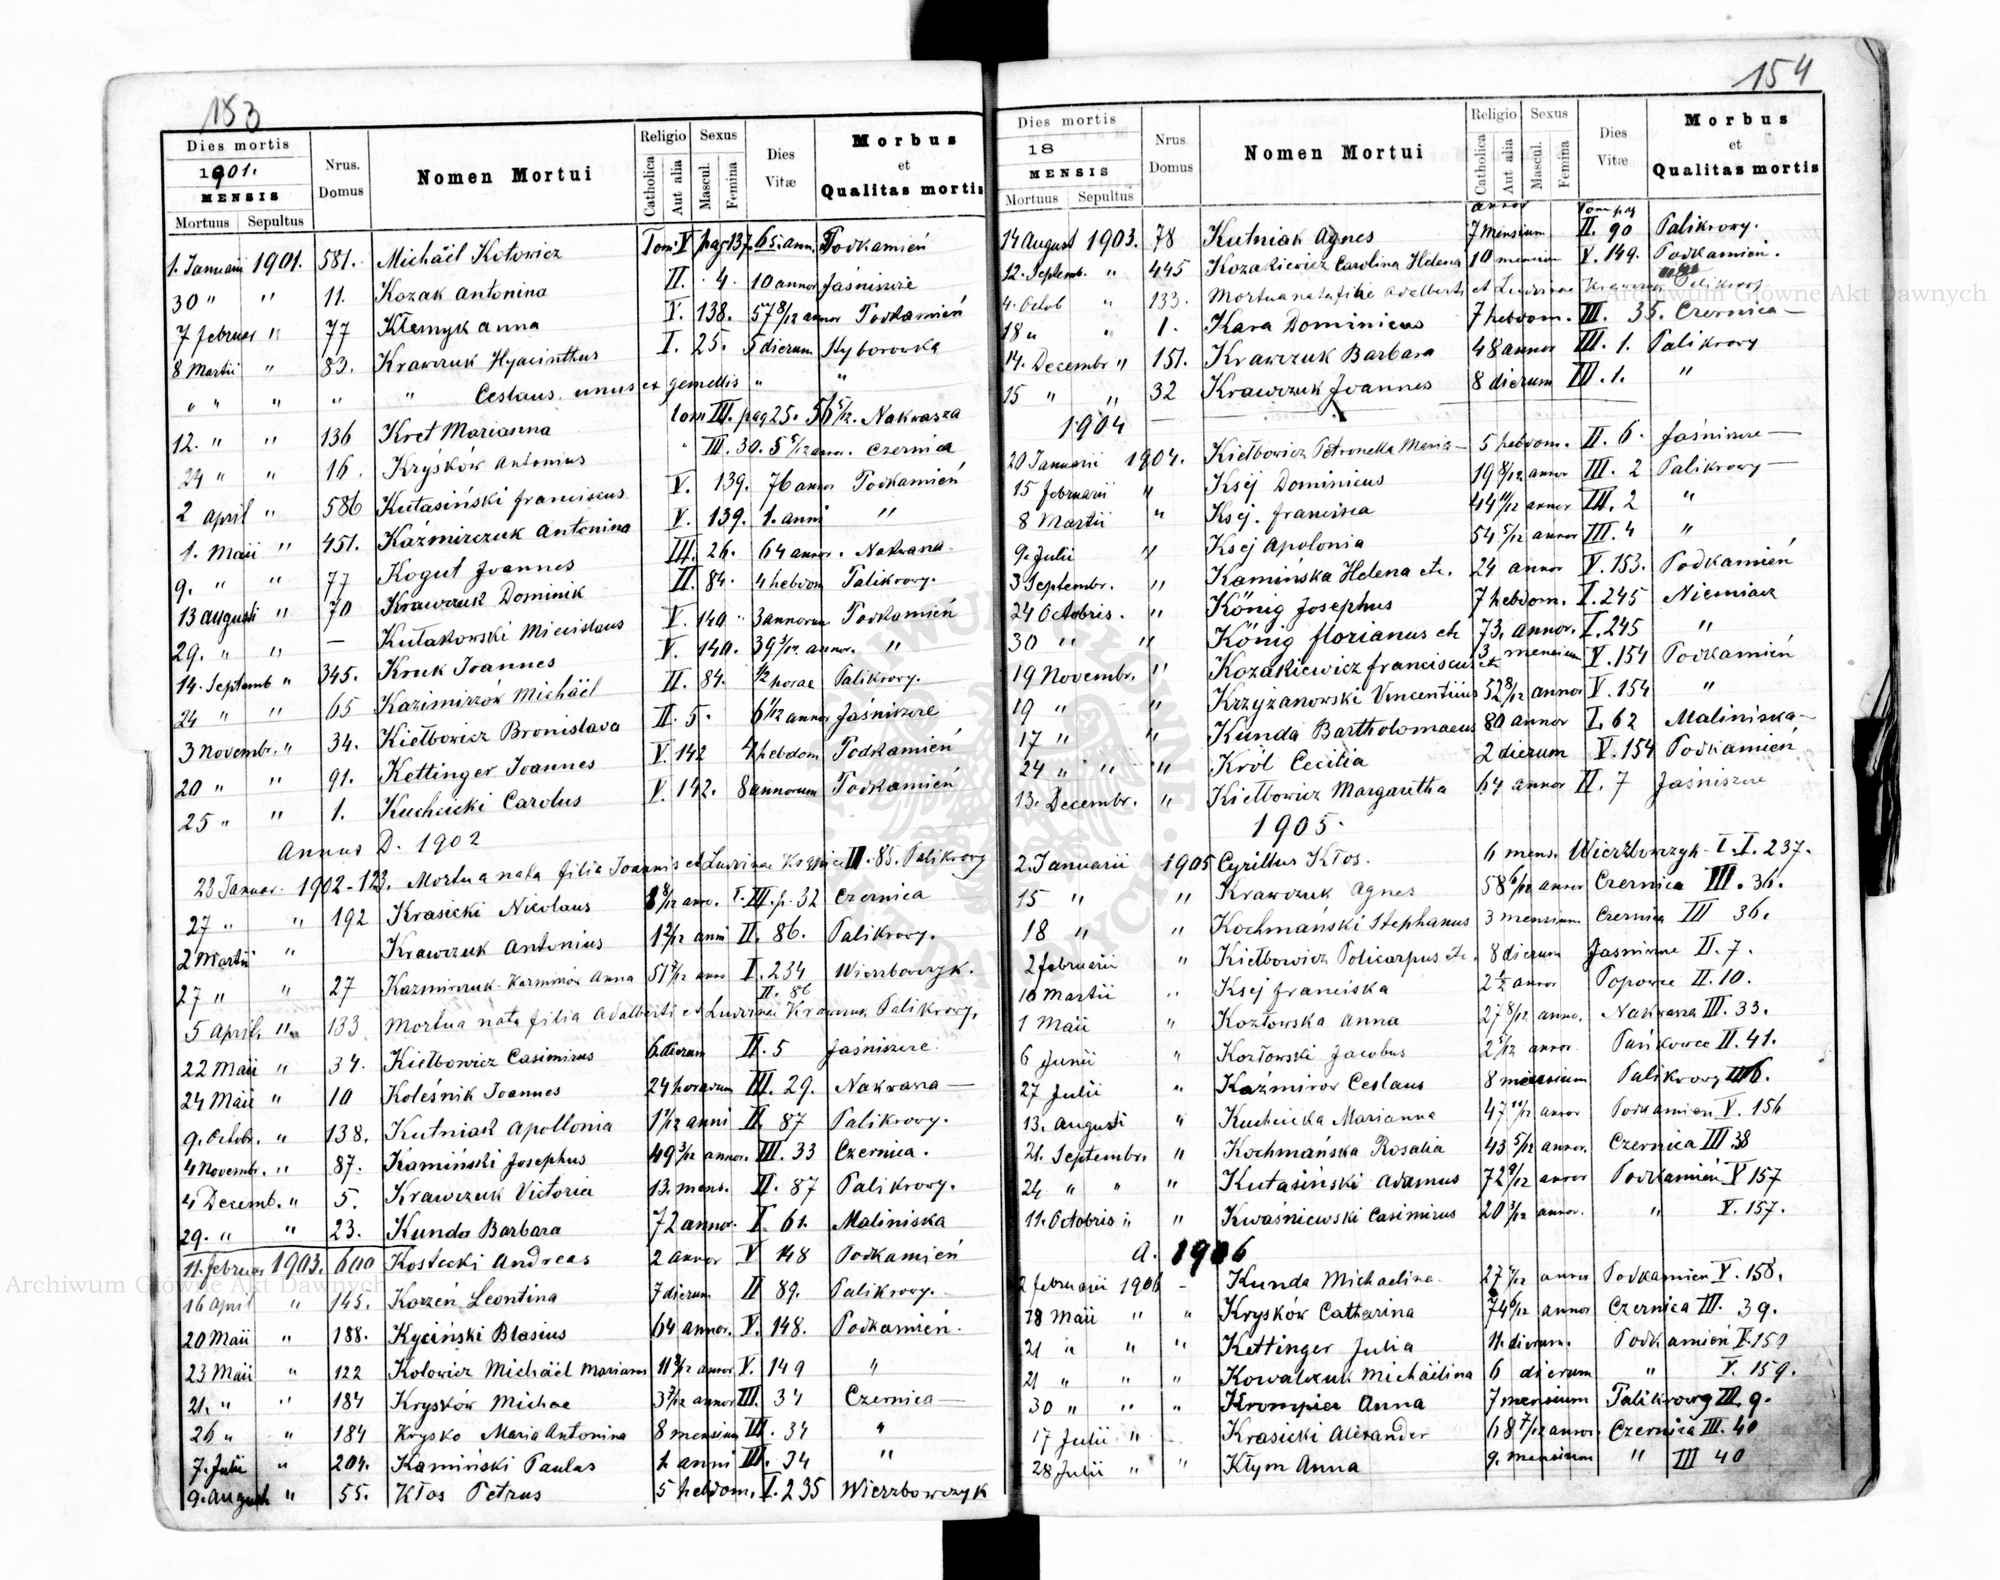 153
Dies mortis
1901.
MENSIS
Mortuus Sepultus
Nrus. Domus
Nomen Mortui
Religio
Catholica
Aut alia
Sexus
Mascul.
Femina
Dies Vitæ
Morbus
et
Qualitas mortis
1. Januarii 1901. 581. Michäel Kołowicz Tom. V pag 137. 65. ann. Podkamień
30 " " 11. Kozak Antonina II. 4. 10 annor Jaśniszcze
7 februar " 77 Kłemyk Anna V. 138. 57 8/12 annor Podkamień
8 Martii " 83. Krawczuk Hyacinthus I. 25. 5 dierum Hyborowka
" " " " " Ceslaus. unus ex gemellis " "
12. " " 136 Kret Marianna tom III. pag 25. 56 5/12. Nakwasza
24 " " 16. Kryśków Antonius " III. 30. 5 5/12 annor. Czernica
2 April " 586 Kutasiński franciscus V. 139. 76 annor Podkamień
1. Maii " 451. Kaźmirczuk Antonina V. 139. 1. anni "
9. " " 77 Kogut Joannes III. 26. 64 annor. Nakwasza
13 augusti " 70 Krawczuk Dominik II. 84. 4 hebdom Palikrovy.
29. " " — Kułakowski Mieceslaus V. 140 " 3 annorum Podkamień
14. Septemb " 345. Kruk Joannes V. 140. 39 5/12 annor. "
24 " " 65 Kazimirzów Michäel II. 84. 1/2 horae Palikrovy.
3 Novembr. " 34. Kiełbowicz Bronislava II. 5. 6 1/12 annor Jaśniszcze
20 " " 91. Kettinger Joannes V. 142 4 hebdom Podkamień
25 " " 1. Kuchcicki Carolus V. 142. 8 annorum Podkamień
Annus D. 1902
23 Januar. 1902 - 123. Mortua nata filia Joannis et Ludvinae II. 85. Palikrovy
27 " " 192 Krasicki Nicolaus 8 8/12 anno. T. III. p. 32 Czernica
2 Martii " Krawczuk Antonius 1 2/12 anni II. 86. Palikrovy.
27 " " 27 Kazmirczuk-Kazmirów Anna 51 7/12 anno I. 234 Wierzbowczyk.
5 April. " 133 Mortua nata filia Adalberti et Ludvinae Krawczuk II. 86 Palikrovy.
22 Maii " 34. Kiełbowicz Casimirus 6. dierum II. 5 Jaśniszcze.
24 Maii " 10 Koleśnik Joannes 24 horarum III. 29. Nakwasza —
9. Octobr. " 138. Kutniak Apollonia 1 1/12 anni II. 87 Palikrovy.
4 Novembr. " 87. Kamiński Josephus 49 3/12 annor. III. 33 Czernica.
4 Decemb. " 5. Krawczuk Victoria 13. mens. II. 87 Palikrovy.
29. " " 23. Kunda Barbara 72 annor. I. 61. Maliniska
11. februar 1903. 600 Kostecki Andreas 2 annor V 148 Podkamień
16 April " 145. Korzeń Leontina 7 dierum II 89. Palikrovy.
20 Maii " 188. Kyciński Blasius 64 annor. V. 148. Podkamień.
23 Maii " 122 Kołowicz Michäel Marianus 11 9/12 annor V. 149 "
21. " " 184 Krysków Michae 3 7/12 annor III. 34 Czernica —
26 " " 184 Krysko Maria Antonina 8 mensium III. 34 "
7. Julii " 204. Kamiński Paulus 1. anni III. 34 "
9. August " 55. Kłos Petrus 5 hebdom. I. 235 Wierzbowczyk
154
Dies mortis
18
MENSIS
Mortuus Sepultus
Nrus Domus
Nomen Mortui
Religio
Catholica
Aut alia
Sexus
Mascul.
Femina
Dies Vitæ
Morbus
et
Qualitas mortis
annor Tom pag
14 August 1903. 78 Kutniak Agnes 7 mensium II. 90 Palikrovy.
12. Septemb. " 445 Kozakiewicz Carolina Helena 10 mensium V. 149. Podkamień.
4. Octob " 133. Mortua nata filia Adalberti et Ludvinae Krawczuk Palikrovy
18 " " 1. Kara Dominicus 7 hebdom. III. 35. Czernica —
14. Decembr " 151. Krawczuk Barbara 48 annor III. 1. Palikrovy
15 " " 32 Krawczuk Joannes 8 dierum III. 1. "
1904
20 Januarii 1904. Kiełbowicz Petronella Maria — 5 hebdom. II. 6. Jaśniszcze —
15 februarii " Ksej Dominicus 19 8/12 annor III. 2 Palikrovy —
8 Martii " Ksej. francisca 44 11/12 annor III. 2 "
9. Julii " Ksej Apolonia 54 5/12 annor III. 4 "
3 Septembr. " Kamińska Helena etc. 24 annor V. 153. Podkamień
24 Octobris. " König Josephus 7 hebdom. I. 245 Niemiacz
30 " " König florianus etc 73. annor. I. 245 "
19 Novembr. " Kozakiewicz franciscus etc 3 mensium V. 154 Podkamień
19 " " Krzyżanowski Vincentius 52 8/12 annor V. 154 "
17 " " Kunda Bartholomaeus 80 annor I. 62 Maliniska —
24 " " " Król Cecilia 2 dierum V. 154 Podkamień
13. Decembr. " Kiełbowicz Margaretha 64 annor II. 7 Jaśniszcze
1905.
2. Januarii 1905 Cyrillus Kłos. 6 mens. Wierzbowczyk T. I. 237.
15 " " Krawczuk Agnes 58 6/12 annor Czernica III. 36.
18 " " Kochmański Stephanus 3 mensium Czernica III 36.
2 februarii " Kiełbowicz Policarpus etc. 8 dierum Jasniszcze II. 7.
16 Martii " Ksej franciska 2 1/2 annor Popowce II. 10.
1 Maii " Kozłowska Anna 27 8/12 anno. Nakwasza III. 33.
6 Junii " Kozłowski Jacobus 2 5/12 annor Pańkowce II. 41.
27 Julii " Kaźmirow Ceslaus 8 mensium Palikrovy III 6.
13. Augusti " Kuchcicka Marianna 47 10/12 annor Podkamien V. 156
21. Septembr. " Kochmańska Rosalia 43 5/12 annor. Czernica III 38
24 " " " Kutasiński Adamus 72 9/12 annor Podkamień V 157
11. Octobris " " Kwaśniewski Casimirus 20 3/12 annor. " V. 157.
A. 1906
2 februarii 1906 - Kunda Michaelina 27 7/12 annor Podkamień V. 158.
18 Maii " " Krysków Catharina 74 6/12 annor Czernica III. 39.
21 " " " Kettinger Julia 11. dierum. Podkamień V. 159
21 " " " Kowalczuk Michäelina 6 dierum " V. 159.
30 " " " Krompiec Anna 7 mensium Palikrovy III. 9.
17 Julii " - Krasicki Alexander 68 7/12 annor. Czernica III. 40
28 Julii " " Kłym Anna 9. mensium " III 40
Archiwum Główne Akt Dawnych
Archiwum Główne Akt Dawnych